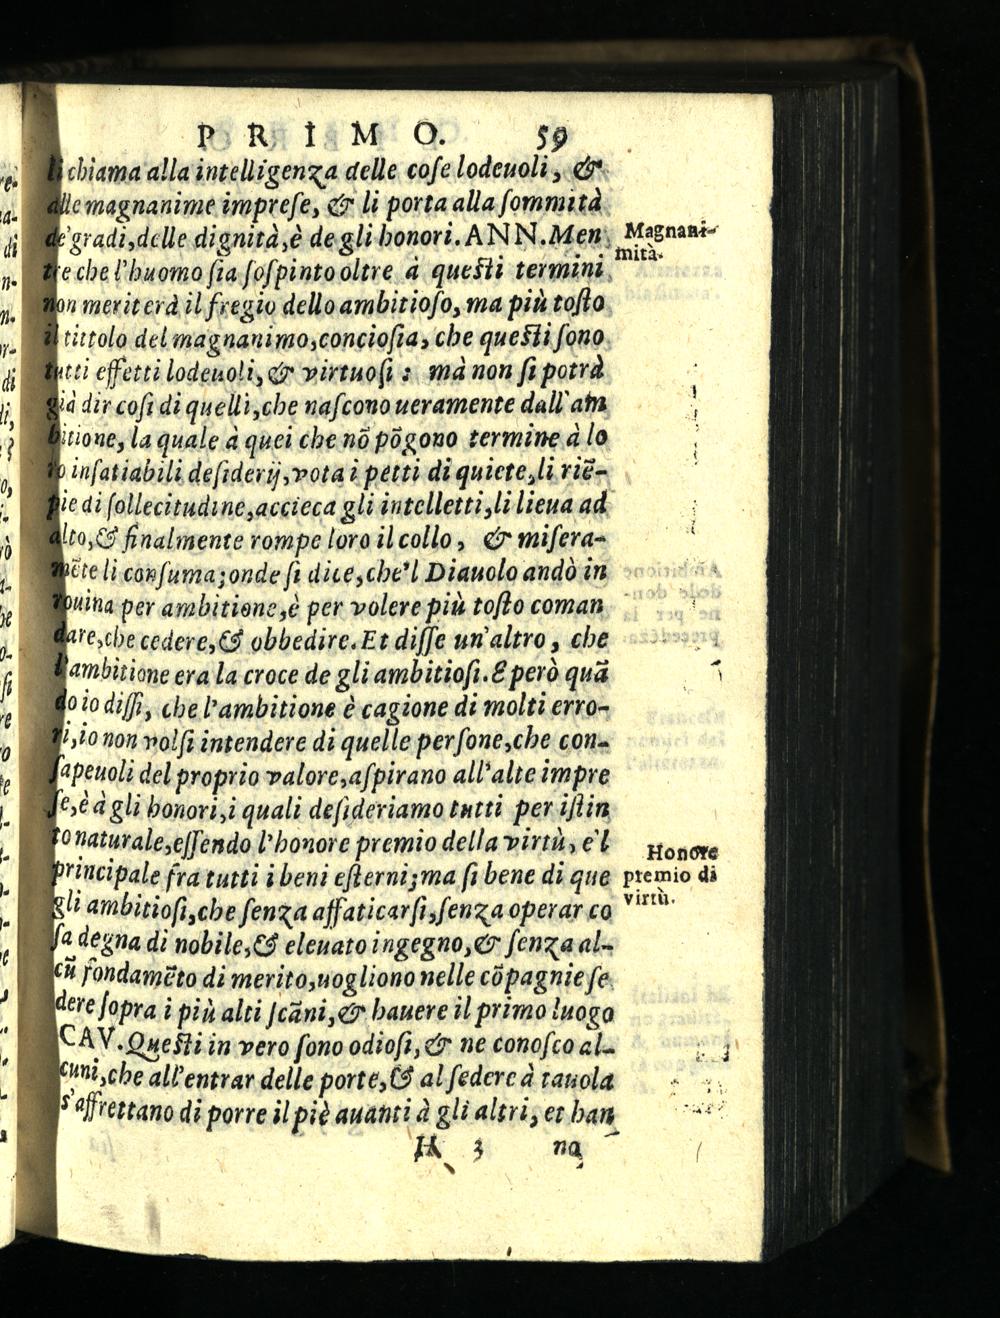 PRIMO. 59
li chiama alla intelligenza delle cose lodeuoli, &
alle magnanime imprese, & li porta alla sommità
de'gradi, delle dignità, è de gli honori. ANN. Men
tre che l'huomo sia sospinto oltre à questi termini
non meriterà il fregio dello ambitioso, ma più tosto
il tittolo del magnanimo, conciosia, che questi sono
tutti effetti lodeuoli, & virtuosi: mà non si potrà
già dir cosi di quelli, che nascono ueramente dall'am
bitione, la quale à quei che nõ põgono termine à lo
ro insatiabili desiderij, vota i petti di quiete, li riẽ-
pie di sollecitudine, accieca gli intelletti, li lieua ad
alto, & finalmente rompe loro il collo, & misera-
mẽte li consuma; onde si dice, che'l Diauolo andò in
rouina per ambitione, è per volere più tosto coman
dare, che cedere, & obbedire. Et disse un'altro, che
l'ambitione era la croce de gli ambitiosi. E però quã
do io dissi, che l'ambitione è cagione di molti erro-
ri, io non volsi intendere di quelle persone, che con-
sapeuoli del proprio valore, aspirano all'alte impre
se, è à gli honori, i quali desideriamo tutti per istin
to naturale, essendo l'honore premio della virtù, e'l
principale fra tutti i beni esterni; ma si bene di que
gli ambitiosi, che senza affaticarsi, senza operar co
sa degna di nobile, & eleuato ingegno, & senza al-
cũ fondamẽto di merito, uogliono nelle cõpagnie se
dere sopra i più alti scãni, & hauere il primo luogo
CAV. Questi in vero sono odiosi, & ne conosco al-
cuni, che all'entrar delle porte, & al sedere à tauola
s'affrettano di porre il piè auanti à gli altri, et han
H 3 no
Magnani-
mità.
Honore
premio di
virtù.